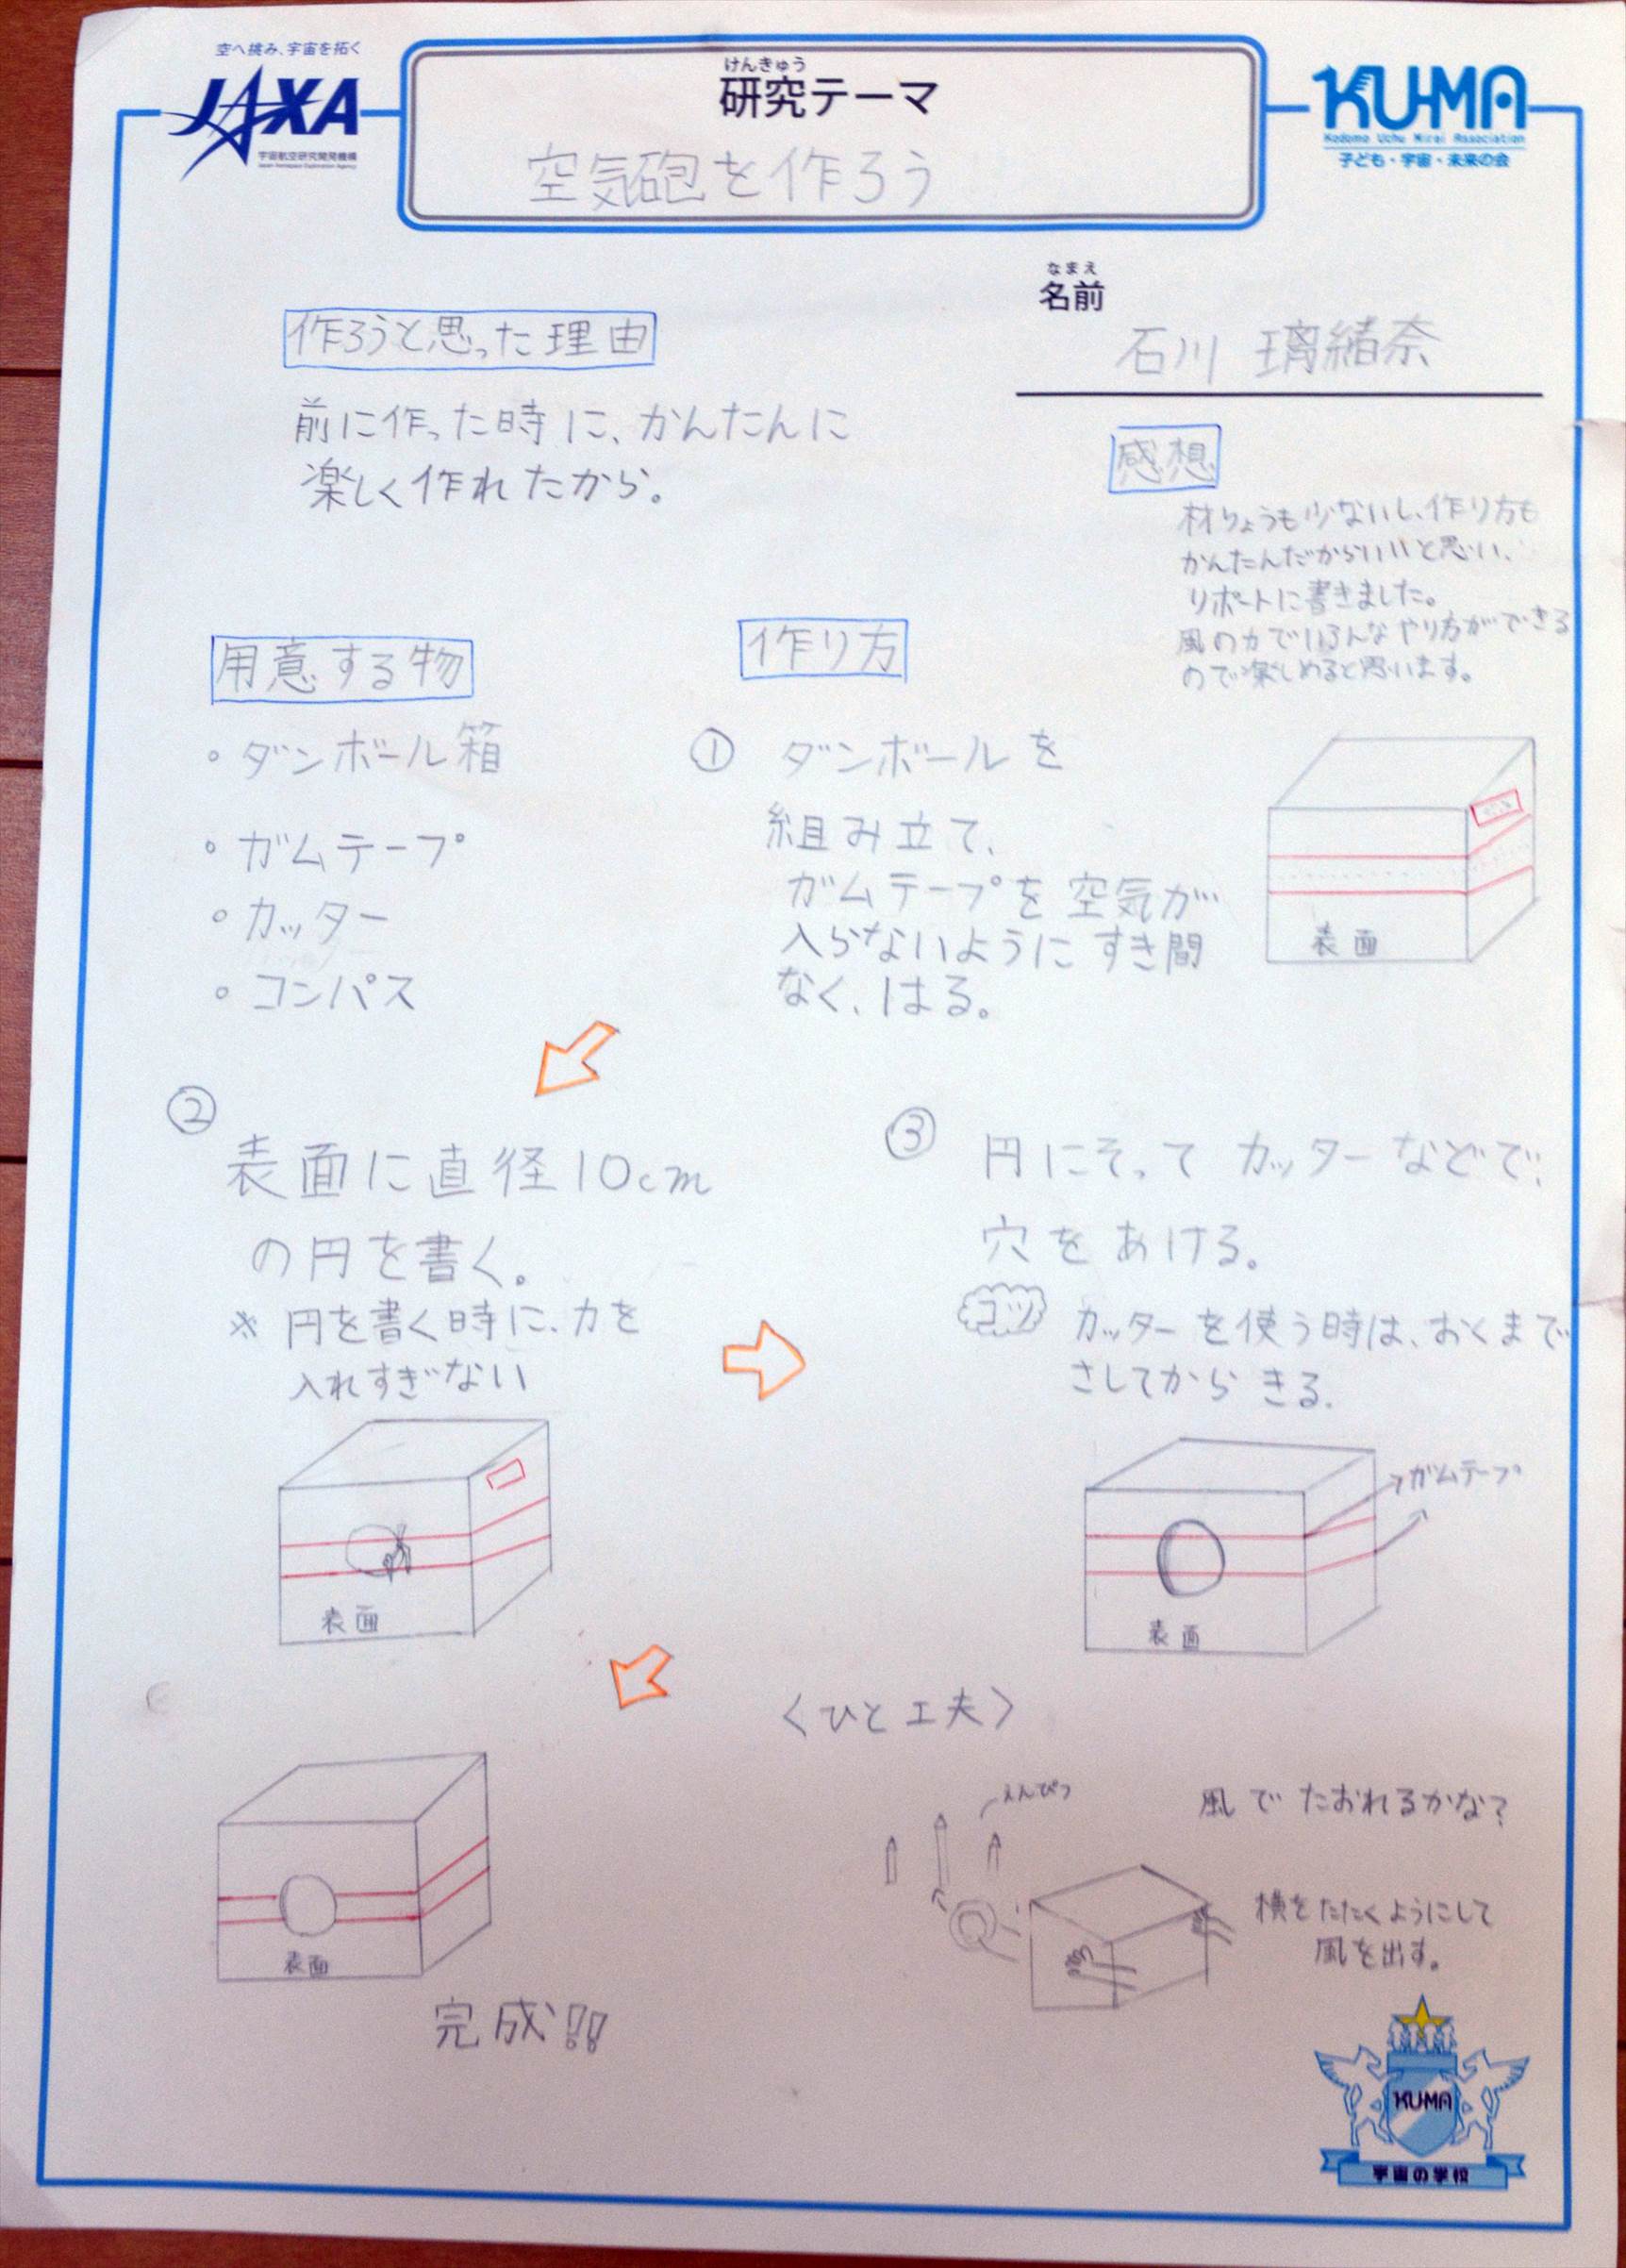 空へ挑み、宇宙を拓く
JAXA
宇宙航空研究開発機構
Japan Aerospace Exploration Agency
けんきゅう
研究テーマ
空気砲を作ろう
KU-MA
Kodomo Uchu Mirai Association
子ども・宇宙・未来の会
なまえ
名前
石川 璃緒奈
作ろうと思った理由
前に作った時に、かんたんに
楽しく作れたから。
感想
材りょうも少ないし、作り方も
かんたんだからいいと思い、
リポートに書きました。
風の力でいろんなやり方ができる
ので楽しめると思います。
用意する物
・ダンボール箱
・ガムテープ
・カッター
・コンパス
作り方
① ダンボールを
組み立て、
ガムテープを空気が
入らないようにすき間
なく、はる。
表面
②
表面に直径10cm
の円を書く。
※ 円を書く時に、力を
入れすぎない
表面
③ 円にそってカッターなどで、
穴をあける。
コツ カッターを使う時は、おくまで
さしてからきる。
ガムテープ
表面
表面
完成!!
〈ひと工夫〉
えんぴつ
風でたおれるかな?
横をたたくようにして
風を出す。
KUMA
宇宙の学校